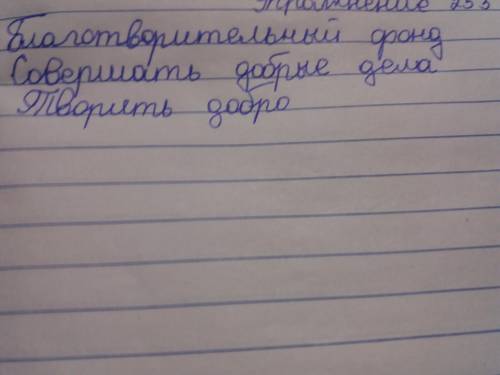 Упражнение 253
Благотворительный фонд
Совершать добрые дела
Творить добро